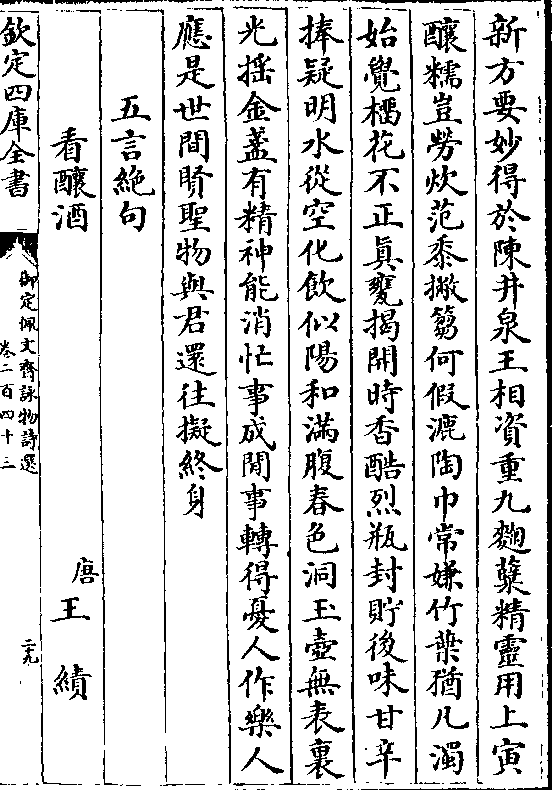 新方要妙得於陳井泉王相資重九麴糵精靈用上寅
釀糯豈勞炊范黍撇蒭何假漉陶巾常嫌竹葉猶凡濁
始覺榴花不正眞甕揭開時香酷烈瓶封貯後味甘辛
捧疑明水從空化飲似陽和滿腹春色洞玉壺無表裏
光揺金盞有精神能消忙事成閒事轉得憂人作樂人
應是世間賢聖物與君還往擬終身
五言絶句
看釀酒
唐王績
欽定四庫全書
御定佩文齋詠物詩選
卷二百四十三
二九